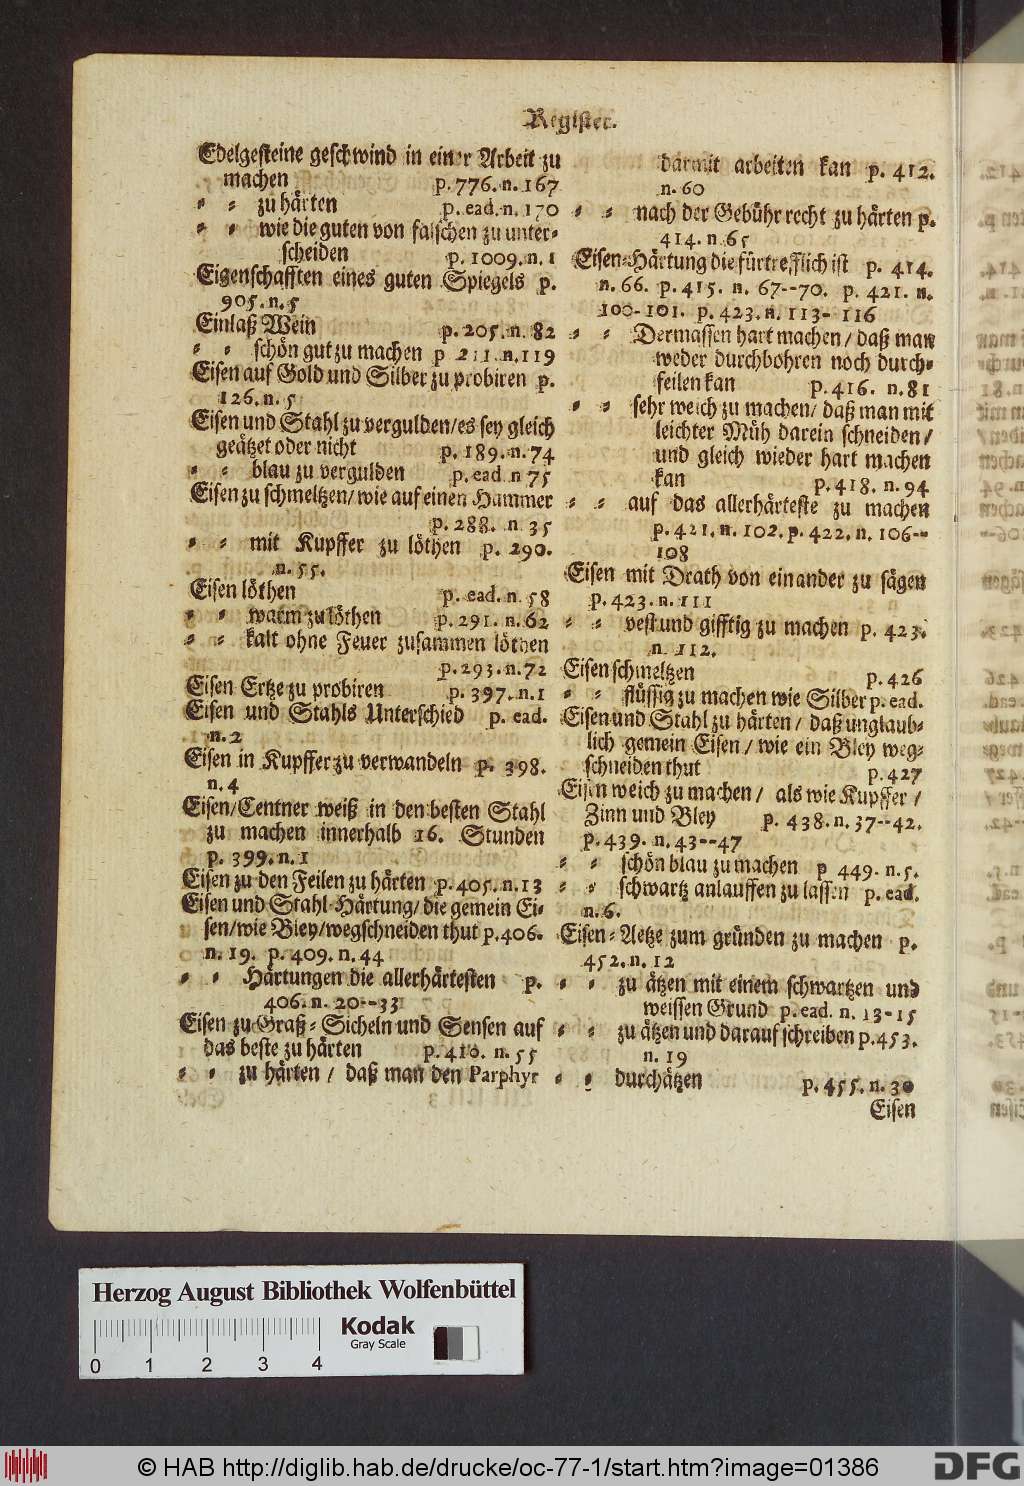 Register.
Edelgesteine geschwind in einer Arbeit zu
machen p. 776. n. 167
⸗ ⸗ zu härten p. ead. n. 170
⸗ ⸗ wie die guten von falschen zu unter⸗
scheiden p. 1009. n. 1
Eigenschafften eines guten Spiegels p.
905. n. 5
Einlaß Wein p. 205. n. 82
⸗ ⸗ schön gut zu machen p 211. n. 119
Eisen auf Gold und Silber zu probiren p.
126. n. 5
Eisen und Stahl zu vergulden/es sey gleich
geätzet oder nicht p. 189. n. 74
⸗ ⸗ blau zu vergulden p. ead. n 75
Eisen zu schmeltzen/ wie auf einen Hammer
p. 288. n. 35
⸗ ⸗ mit Kupffer zu löthen p. 290.
n. 55.
Eisen löthen p. ead. n. 58
⸗ ⸗ warm zu löthen p. 291. n. 62
⸗ ⸗ kalt ohne Feuer zusammen löthen
p. 293. n. 72
Eisen Ertze zu probiren p. 397. n. 1
Eisen und Stahls Unterschied p. ead.
n. 2
Eisen in Kupffer zu verwandeln p. 398.
n. 4
Eisen/Centner weiß in den besten Stahl
zu machen innerhalb 16. Stunden
p. 399. n. 1
Eisen zu den Feilen zu härten p. 405. n. 13
Eisen und Stahl-Härtung/ die gemein Ei⸗
sen/wie Bley/wegschneiden thut p. 406.
n. 19. p. 409. n. 44
⸗ ⸗ Härtungen die allerhärtesten p.
406. n. 20--33
Eisen zu Graß⸗Sicheln und Sensen auf
das beste zu härten p. 410. n. 55
⸗ ⸗ zu härten / daß man den Parphyr
darmit arbeiten kan p. 412.
n. 60
⸗ ⸗ nach der Gebühr recht zu härten p.
414. n. 65
Eisen⸗Härtung die fürtrefflich ist p. 414.
n. 66. p. 415. n. 67--70. p. 421. n.
100-101. p. 423. n. 113-116
⸗ ⸗ Dermassen hart machen / daß man
weder durchbohren noch durch⸗
feilen kan p. 416. n. 81
⸗ ⸗ sehr weich zu machen/ daß man mit
leichter Müh darein schneiden /
und gleich wieder hart machen
kan p. 418. n. 94
⸗ ⸗ auf das allerhärteste zu machen
p. 421. n. 102. p. 422. n. 106--
108
Eisen mit Drath von einander zu sägen
p. 423. n. 111
⸗ ⸗ vest und gifftig zu machen p. 423.
n. 112.
Eisen schmeltzen p. 426
⸗ ⸗ flüssig zu machen wie Silber p. ead.
Eisen und Stahl zu härten / daß unglaub⸗
lich gemein Eisen / wie ein Bley weg⸗
schneiden thut p. 427
Eisen weich zu machen / als wie Kupffer /
Zinn und Bley p. 438. n. 37--42.
p. 439. n. 43--47
⸗ ⸗ schön blau zu machen p 449. n. 5.
⸗ ⸗ schwartz anlauffen zu lassen p. ead.
n. 6.
Eisen⸗Aetze zum gründen zu machen p.
452. n. 12
⸗ ⸗ zu ätzen mit einem schwartzen und
weissen Grund p. ead. n. 13-15
⸗ ⸗ zu ätzen und darauf schreiben p. 453.
n. 19
⸗ ⸗ durchätzen p. 455. n. 30
Eisen
Herzog August Bibliothek Wolfenbüttel
Kodak
Gray Scale
0 1 2 3 4
© HAB http://diglib.hab.de/drucke/oc-77-1/start.htm?image=01386
DFG